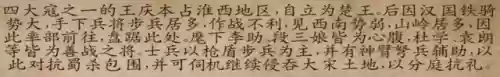 四大寇之一的王庆本占淮西地区，自立为楚王。后因汉国铁骑
势大，手下兵将步兵居多，作战不利，见西南势弱，山岭居多，因
此率部前往，盘踞此处。麾下李助、段三娘皆为心腹，杜学、袁朗
等皆为善战之将，士兵以枪盾步兵为主，并有神臂弩兵辅助，以
此对抗蜀杀包围，并可伺机继续侵吞大宋土地，以分庭抗礼。